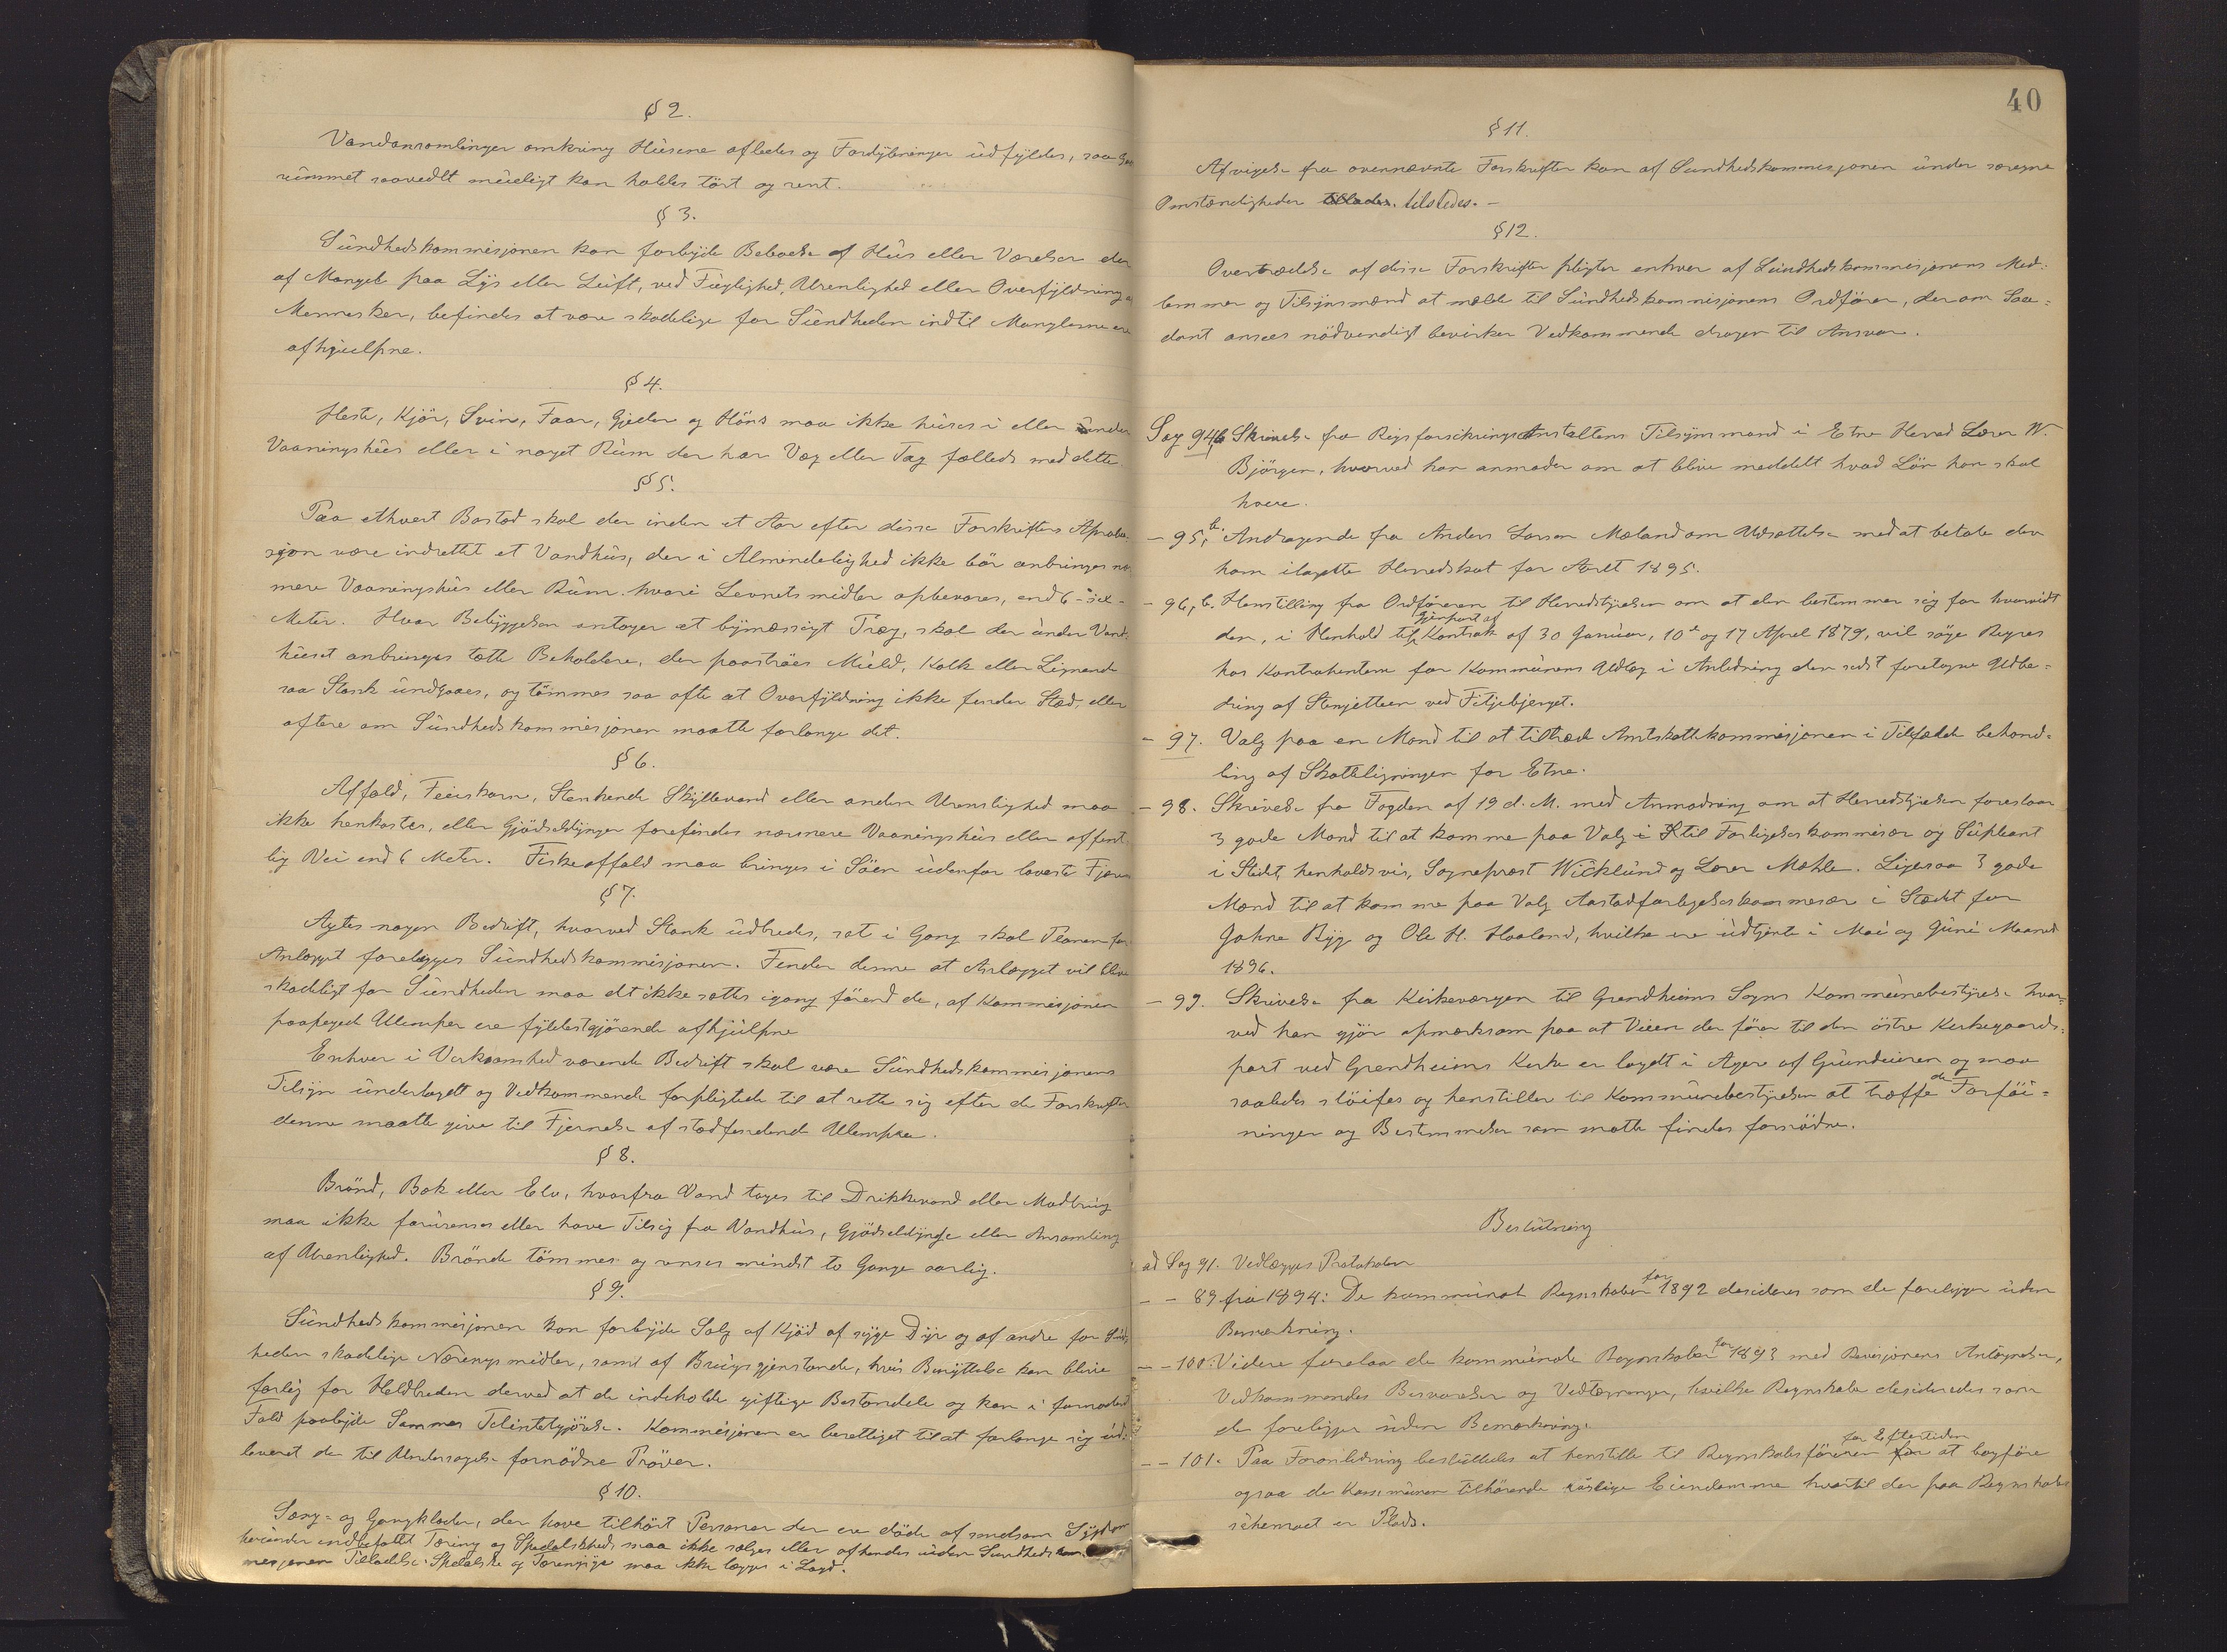 § 2.
Vandansamlinger omkring Húsene afledes og Fordybninger údfyldes, saa
rúmmet saavidt múeligt kan holdes tört og rent.
§ 3.
Súndhedskommisjonen kan forbyde Beboelse af Hús eller Værelser der
af Mangel paa Lys eller Lúft, ved Fúgtighed, Urenlighed eller Overfyldning a
Mennesker, befindes at være skadelige for Súndheden indtil Manglerne ere
afhjúlpne.
§ 4.
Heste, Kjör, Svin, Faar, Gjeder og Höns maa ikke húses i eller únder
Vaaningshús eller i noget Rúm der har Væg eller Tag fælleds med dette.
§ 5.
Paa ethvert Bosted skal der inden et Aar efter disse Forskrifters Aproba-
sjon være indrettet et Vandhús, der i Almindelighed ikke bör anbringes nær-
mere Vaaningshús eller Rúm hvori Levnetsmidler opbevares, end 6 - sex -
Meter. Hvor Bebyggelsen antager et bymæssigt Præg, skal der únder Vand-
húset anbringes tætte Beholdere, der paaströes Múld, Kalk eller Lignende
saa Stank úndgaaes, og tömmes saa ofte at Overfyldning ikke finder Sted, eller
oftere om Súndhedskommisjonen maatte forlange det.
§ 6.
Affald, Feieskarn, Stinkende Skyllevand eller anden Urenslighed maa
ikke henkastes, eller Gjödseldynger forefindes nærmere Vaaningshús eller offent-
lig Vei end 6 Meter. Fiskeaffald maa bringes i Söen údenfor laveste Fjære
§ 7.
Agtes nogen Bedrift, hvorved Stank údbredes, sat i Gang skal Planen for
Anlægget forelægges Súndhedskommisjonen. Finder denne at Anlægget vil blive
skadeligt for Súndheden maa det ikke sættes igang förend de, af Kommisjonen
paapegede Ulemper ere fyldestgjörende afhjúlpne
Enhver i Virksomhed værende Bedrift skal være Súndhedskommisjonens
Tilsyn únderlagdt og Vedkommende forpligtede til at rette sig efter de Forskrifter
denne maatte give til Fjernelse af stadfindende Ulemper.
§ 8.
Brönd, Bæk eller Elv, hvorfra Vand tages til Drikkevand eller Madbrúg
maa ikke forúrenses eller have Tilsig fra Vandhús, Gjödseldynge eller Ansamling
af Urenlighed. Brönde tömmes og renses mindst to Gange aarlig.
§ 9.
Súndhedskommisjonen kan forbyde Salg af Kjöd af syge Dyr og af andre for Súnd-
heden skadelige Næringsmidler, samt af Brúgsgjenstande, hvis Benyttelse kan blive
farlig for Heldbreden derved at de indeholde giftige Bestandele og kan i fornöden
Fald paabyde Sammes Tilintetgjörelse. Kommisjonen er berettiget til at forlange sig úd-
leveret de til Úndersögelse fornödne Pröver.
§ 10.
Seng- og Gangklæder, der have tilhört Personer der ere döde af smitsom Sygdom
herúnder indbefattet Tæring og Spedalskhed maa ikke sælges eller afhendes úden Súndhedskom-
mesjonens Tilladelse. Spedalske og Tæringsyge maa ikke lægges i Lægd.
40
§ 11.
Afvigelse fra ovennævnte Forskrifter kan af Sundhedskommisjonen únder særegne
Omstændigheder tillades. tilstedes. -
§ 12.
Overtrædelse af disse Forskrifter pligter enhver af Súndhedskommisjonens Med-
lemmer og Tilsynsmænd at melde til Súndhedskommisjonens Ordförer, der om Saa-
dant ansees nödvendigt bevirker Vedkommende dragen til Ansvar.
Sag 94,b Skrivelse fra Rigsforsikringsanstaltens Tilsynsmand i Etne Herred Lærer W.
Björgen, hvorved han anmoder om at blive meddelt hvad Lön han skal
have.
- 95,b. Andragende fra Anders Larsen Mæland om Udsættelse med at betale den
ham ilagte Herredskat for Aaret 1895.
- 96,b. Henstilling fra Ordföreren til Herredstyrelsen om at den bestemmer sig for hvorvidt
den, i Henhold til Gjenpart af Kontrakt af 30 Janúar, 10de og 17 April 1879, vil söge Regres
hos Kontrahenten for Kommúnens Udlæg i Anledning den sidst foretagne Udbe-
dring af Stenjetteen ved Filjebjerget.
- 97. Valg paa en Mand til at tiltræde Amtskattekommisjonen i Tilfælde behand-
ling af Skatteligningen for Etne.
- 98. Skrivelse fra Fogden af 19 d. M. med Anmodning om at Herredstyrelsen foreslaar
3 gode Mænd til at komme paa Valg i til Forligelseskommisær og Súpleant
i Stedet henholdsvis, Sogneprest Wicklúnd og Lærer Mæhle. Ligesaa 3 gode
Mænd til at komme paa Valg Aastadforligelseskommisær i Stedet for
Johne Ryg og Ole H. Haaland, hvilke ere údtjente i Mai og Júni Maaned
1896.
- 99. Skrivelse fra Kirkeværgen til Grindheims Sogns Kommúnebestyrelse hvor-
ved han gjör opmærksom paa at Veien der förer til den östre Kirkegaards-
port ved Grindheims Kirke er lagdt i Ager af Grúndeieren og maa
saaledes slöifes og henstiller til Kommúnebestyrelsen at træffe de Forföi-
ninger og Bestemmelser som matte findes fornödne.
Beslútning
ad Sag 91. Vedlægges Protokolen
- - 89 fra 1894: De kommúnale Regnskaber for 1892 desideres som de foreligger úden
Bemærkning.
- - 100. Videre forelaa de kommúnale Regnskaber for 1893 med Revisjonens Antegnelser,
Vedkommendes Besvarelser og Vedtegninger, hvilke Regnskaber desideredes som
de foreligger úden Bemærkning.
- - 101. Paa Foranledning beslúttedes at henstille til Regnskabsföreren for Eftertiden at bogföre
ogsaa de Kommúnen tilhörende röslige Eiendomme hvortil der paa Regnskabs
schemaet er Plads.